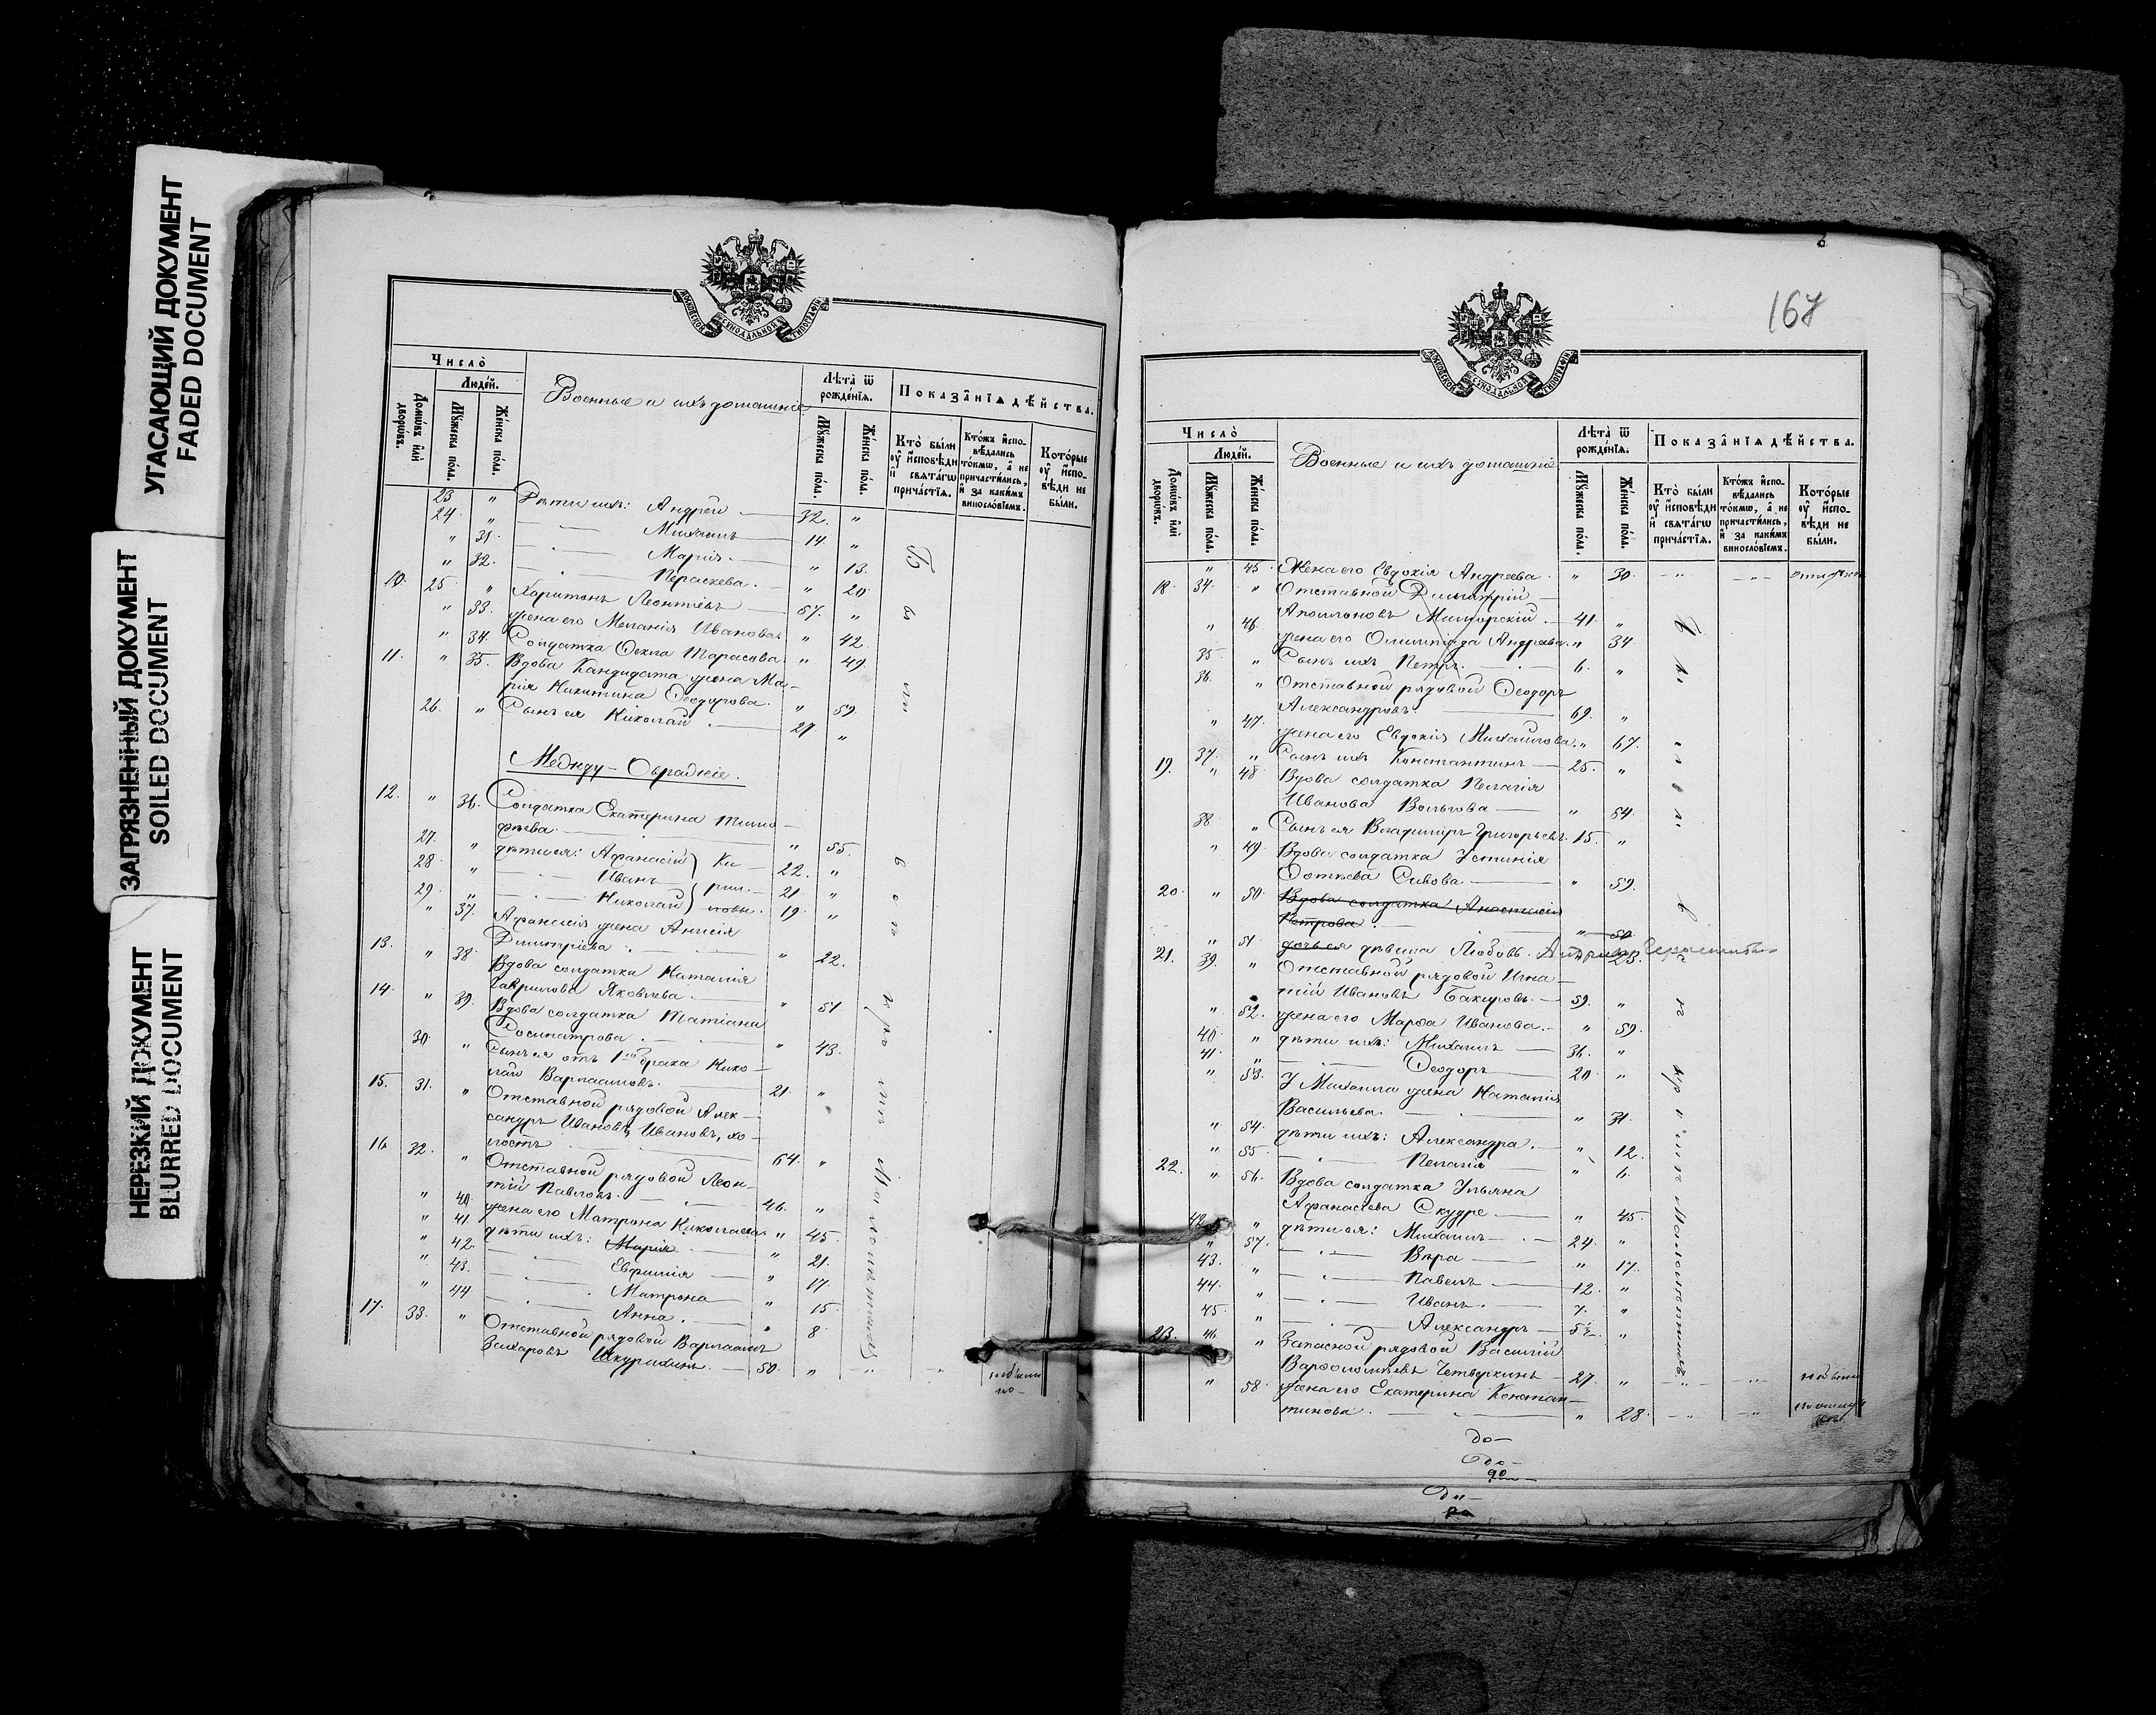 УГАСАЮЩИЙ ДОКУМЕНТ
FADED DOCUMENT
ЗАГРЯЗНЕННЫЙ ДОКУМЕНТ
SOILED DOCUMENT
НЕРЕЗКИЙ ДОКУМЕНТ
BLURRED DOCUMENT
МОСКОВСКОЙ СѴНОДАЛЬНОЙ ТИПОГРАФІИ
Число̀
Люде́й.
Домѡ́въ и҆лѝ дворѡ́въ.
Мꙋ́жеска по́ла.
Же́нска по́ла.
Военные и ихъ домашніе
Лѣ́та ѿ рожде́нїѧ.
Мꙋ́жеска по́ла.
Же́нска по́ла.
Показа̑нїѧ дѣ́йства.
Кто̀ бы́ли оу҆ и҆́сповѣди и҆ свѧта́гѡ прича́стїѧ.
Кто́жъ и҆спо- вѣ́дались то́кмѡ, а҆ не причасти́лись, и҆ за каки́мъ винослов́їемъ.
Кото́рые оу҆ и҆́спо- вѣди не бы́ли.
23 " Дѣти ихъ: Андрей — 32. "
24. " — Михаилъ — 14. "
" 31. — Марія. — " 13.
" 32. — Параскева. " 20.
10. 25. " Харитонъ Леонтіевъ — 57. "
" 33. жена его Меланія Иванова. " 42.
" 34. Солдатка Ѳекла Тарасова. " 49.
11. " 35. Вдова Кандидата жена Ма-
рія Никитина Ѳеодорова. " 59.
26. " Сынъ ея Николай — 27 "
Между-Овражніе.
12. " 36. Солдатка Екатерина Тимо-
фѣева. — " 55.
27. " дѣти ея: Афанасій } Ки- 22. "
28. " — Иванъ } рил- 21. "
29. " — Николай } ловы. 19. "
" 37. Афанасія жена Анисія
Димитріева. — " 22.
13. " 38. Вдова солдатка Наталія
Гаврилова Яковлева. — " 51
14. " 39. Вдова солдатка Татіана
Сосипатрова. — " 43.
30. " Сынъ ея отъ 1го брака Нико-
лай Варлаамовъ. — 21. "
15. 31. " Отставной рядовой Алек-
сандръ Ивановъ Ивановъ, хо-
лостъ — 64. "
16. 32. " Отставной рядовой Леон-
тій Павловъ. — 46. "
" 40. жена его Матрона Николаева. " 45.
" 41. дѣти ихъ: Марія. " 21.
" 42. — Евфимія — " 17.
" 43. — Матрона — " 15.
" 44 — Анна. — " 8
17. 33. " Отставной рядовой Варлаамъ
Захаровъ Шкурихинъ. — 50. " " "
167
МОСКОВСКОЙ СѴНОДАЛЬНОЙ ТИПОГРАФІИ
Число̀
Люде́й.
Домѡ́въ и҆лѝ дворѡ́въ.
Мꙋ́жеска по́ла.
Же́нска по́ла.
Военные и ихъ домашніе
Лѣ́та ѿ рожде́нїѧ.
Мꙋ́жеска по́ла.
Же́нска по́ла.
Показа̑нїѧ дѣ́йства.
Кто̀ бы́ли оу҆ и҆́сповѣди и҆ свѧта́гѡ прича́стїѧ.
Кто́жъ и҆спо- вѣ́дались то́кмѡ, а҆ не причасти́лись, и҆ за каки́мъ винослов́їемъ.
Кото́рые оу҆ и҆́спо- вѣди не бы́ли.
" 45. Жена его Евдокія Андреева. " 30.
18. 34. " Отставной Димитрій —
Аполлоновъ — 41. "
" 46. жена его Олимпіада Андреева. " 34.
35. " Сынъ ихъ Петръ. — 6. "
36. " Отставной рядовой Ѳеодоръ
Александровъ. — 69. "
" 47. жена его Евдокія Михайлова. " 67.
37. " Сынъ ихъ Константинъ — 25. "
19. " 48. Вдова солдатка Пелагія
Иванова Волкова — " 54.
38. " Сынъ ея Владиміръ Григорьевъ. 15. "
" 49. Вдова солдатка Устинія
Фотіева Сивова — " 59.
20. " 50. Вдова солдатка Анастасія
Петрова. — " 50.
" 51. дочь ея дѣвица Любовь. " 23.
21. 39. " Отставной рядовой Игна-
тій Ивановъ Бакировъ. — 59. "
" 52. жена его Марѳа Иванова. — " 59.
40. " дѣти ихъ: Михаилъ — 36. "
41. " — Ѳеодоръ — 20. "
" 53. У Михаила жена Наталія
Васильева. — " 31.
" 54. дѣти ихъ: Александра. — " 12.
" 55. — Пелагія — " 6.
22. " 56. Вдова солдатка Ульяна
Афанасіева Скудре — " 45.
42. " дѣти ея: Михаилъ — 24. "
" 57. — Вѣра — " 17.
43. " — Павелъ — 12. "
44. " — Иванъ. — 7. "
45. " — Александръ — 5½ "
23. 46. " Запасной рядовой Василій
Варѳоломѣевъ Четверкинъ — 27. "
" 58. жена его Екатерина Констан-
тинова. — " 28.